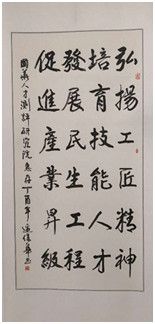 弘揚工匠精神
培育技能人才
發展民生工程
促進產業昇級
國人才測評研究院惠存丁酉年